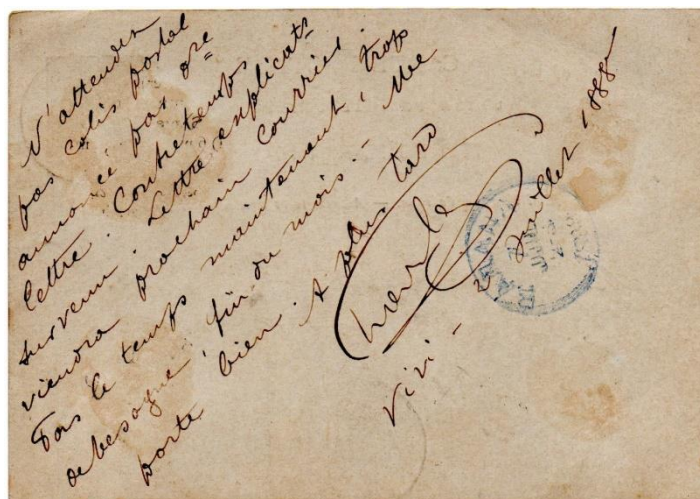 N'attendez
pas colis postal
annoncé par dre
lettre. Contretemps
survenu. Lettre explicats
viendra prochain courrier.
Pas le temps maintenant, trop
de besogne, fin du mois. - Me
porte bien. A plus tard
Vivi - 2 Juillet 188